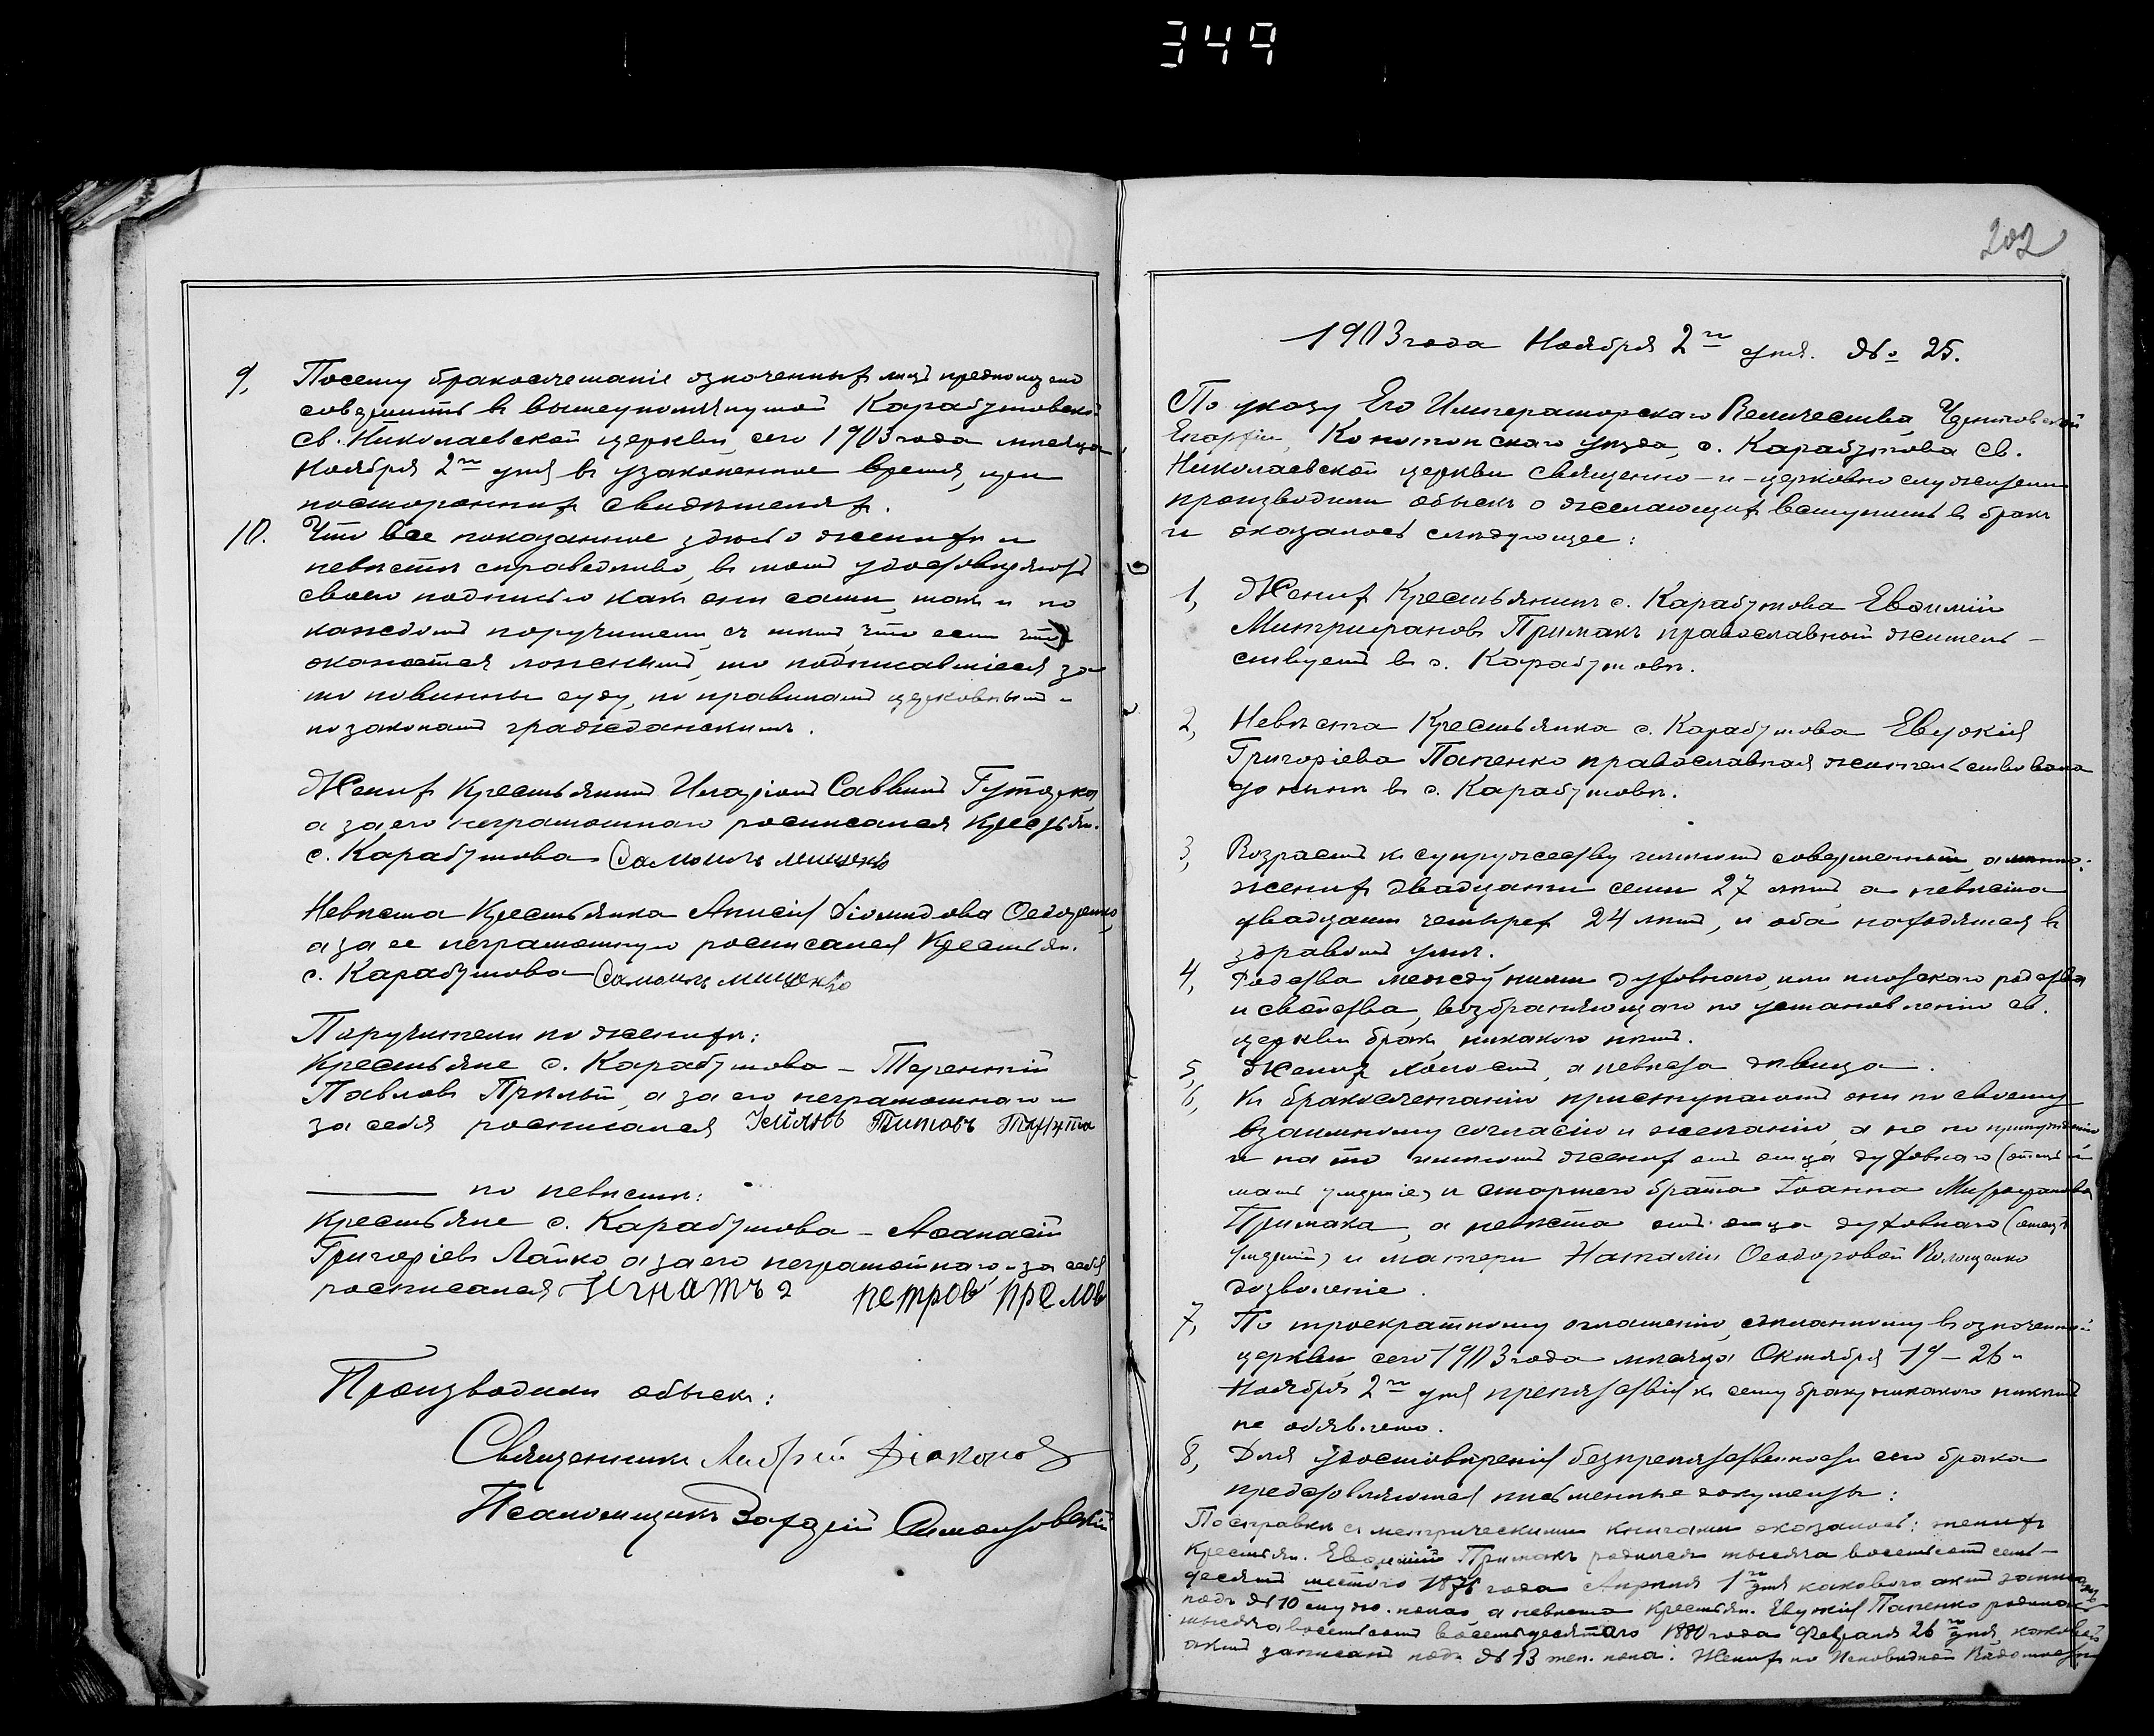 349
9, Посему бракосочетаніе означенныхъ лицъ предположено
совершить въ вышеупомянутой Карабутовской
Св. Николаевской церкви, сего 1903 года мѣсяца
Ноября 2го дня въ узаконенное время, при
постороннихъ свидѣтеляхъ.
10. Что все показанное здѣсь о женихѣ и
невѣстѣ справедливо, въ томъ удостовѣряютъ
своею подписью какъ они сами, такъ и по
каждомъ поручители, съ тѣмъ, что если что
окажется ложнымъ, то подписавшіеся за
то повинны суду, по правиламъ церковнымъ и
по законамъ гражданскимъ.
Женихъ Крестьянинъ Иларіонъ Саввинъ
а за его неграмотнаго росписался Крестьян.
с. Карабутова
Невѣста Крестьянка Анисія Діомидова
а за ее неграмотную росписался Крестьян.
с. Карабутова
Поручители по женихѣ:
Крестьяне с. Карабутова – Терентій
Павловъ а за его неграмотнаго и
за себя росписался Титовъ
— по невѣстѣ:
Крестьяне с. Карабутова – Аѳанасій
Григоріевъ Лайко, а за его неграмотнаго и за себя
росписался Игнатъ петровъ
Производили обыскъ:
Священникъ Андрей Діаконов
Псаломщикъ
202
1903 года Ноября 2го дня. № 25.
По указу Его Императорскаго Величества, Черниговской
Епархіи, Конотопскаго уѣзда, с. Карабутова Св.
Николаевской церкви священно-и-церковно служители
производили обыскъ о желающихъ вступить въ бракъ
и оказалось слѣдующее:
1, Женихъ Крестьянинъ с. Карабутова Евѳимій
Митрофановъ Примакъ православный житель-
ствуетъ въ с. Карабутовѣ.
2, Невѣста Крестьянка с. Карабутова Евдокія
Григоріева Папенко православная жительствовала
до нынѣ въ с. Карабутовѣ.
3, Возрастъ къ супружеству имѣютъ совершенный, а именно:
женихъ двадцати семи 27 лѣтъ, а невѣста
двадцати четырех 24 лѣтъ, и оба находятся въ
здравомъ умѣ.
4, Родства между ними духовнаго, или плотскаго родства
и свойства, возбраняющаго по установленію св.
церкви бракъ, никакого нѣтъ.
5, Женихъ холостъ, а невѣста дѣвица.
6, Къ бракосочетанію приступаютъ они по своему
взаимному согласію и желанію, а не по принужденію
и на то имѣютъ женихъ отъ отца духовнаго (отецъ и
мать умершіе) и старшего брата Іоанна Митрофанова
Примака, а невѣста отъ отца духовнаго (отецъ
умерший) и матери Наталіи Ѳеодоровой Волощенко
дозволеніе.
7, По троекратному оглашенію, сдѣланному въ означенной
церкви, сего 1903 года мѣсяца Октября 19 – 26 и
Ноября 2го дня препятствія къ сему браку никакого никѣмъ
не объявлено.
8, Для удостовѣренія безпрепятственности сего брака
представляются письменные документы:
По справкѣ съ метрическими книгами оказалось: женихъ
Крестьян. Евѳимій Примакъ родился тысяча восемьсотъ семь-
десятъ шестого 1876 года Апрѣля 1го дня каковой актъ записанъ
подъ № 10 муж. пола, а невѣста Крестьян. Евдокія Папенко родилась
тысяча восемьсотъ восемьдесятаго 1880 года Февраля 26го дня, каковой
актъ записанъ подъ № 13 жен. пола. Женихъ по Исповѣдной Вѣдомости